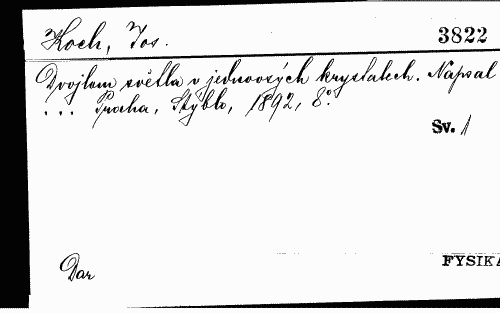 Koch, Jos.
3822
Dvojlom světla v jednoosých krystalech. Napsal
... Praha, Stýblo, 1892, 8°.
Sv. 1
Dar
FYSIKA